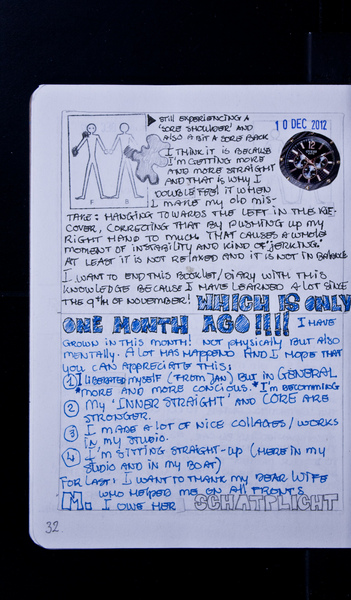 ▶ STILL EXPERIENCING A
'SORE SHOULDER' AND
ALSO A BIT A SORE BACK
10 DEC 2012
I THINK IT IS BECAUSE
I'M GETTING MORE
AND MORE STRAIGHT
AND THAT IS WHY I
DOUBLE FEEL IT WHEN
I MADE MY OLD MIS-
TAKE: HANGING TOWARDS THE LEFT IN THE RE-
COVER, CORRECTING THAT BY PUSHING UP MY
RIGHT HAND TO MUCH. THAT CAUSES A WHOLE
MOMENT OF INSTABILITY AND KIND OF 'JERKING'.
AT LEAST IT IS NOT RELAXED AND IT IS NOT IN BALANCE
I WANT TO END THIS BOOKLET/DIARY WITH THIS
KNOWLEDGE BECAUSE I HAVE LEARNED A LOT SINCE
THE 9TH OF NOVEMBER! WHICH IS ONLY
ONE MONTH AGO!!!! I HAVE
GROWN IN THIS MONTH! NOT PHYSICALLY BUT ALSO
MENTALLY. A LOT HAS HAPPEND AND I HOPE THAT
YOU CAN APPRECIATE THIS:
1 I LIBERATED MYSELF (FROM JAN) BUT IN GENERAL
*MORE AND MORE CONCIOUS. *I'M BECOMMING
2 MY 'INNER STRAIGHT' AND CORE ARE
STRONGER.
3 I MADE A LOT OF NICE COLLAGES/WORKS
IN MY STUDIO.
4 I'M SITTING STRAIGHT-UP (HERE IN MY
STUDIO AND IN MY BOAT)
FOR LAST! I WANT TO THANK MY DEAR WIFE
WHO HELPED ME ON ALL FRONTS
M. I OWE HER SCHATPLICHT
32